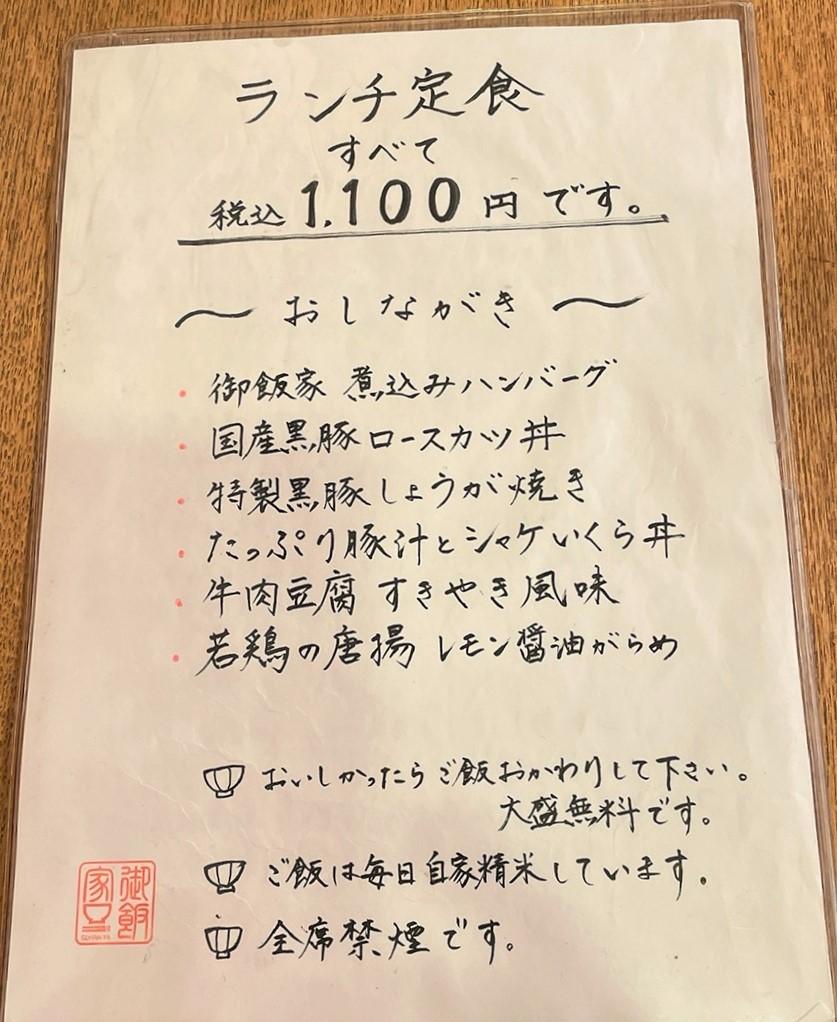 ランチ定食
すべて
税込 1,100円です。
〜 おしながき 〜
・御飯家 煮込みハンバーグ
・国産黒豚ロースカツ丼
・特製黒豚しょうが焼き
・たっぷり豚汁とシャケいくら丼
・牛肉豆腐 すきやき風味
・若鶏の唐揚 レモン醤油がらめ
おいしかったらご飯おかわりして下さい。
大盛無料です。
ご飯は毎日自家精米しています。
全席禁煙です。
御飯
家